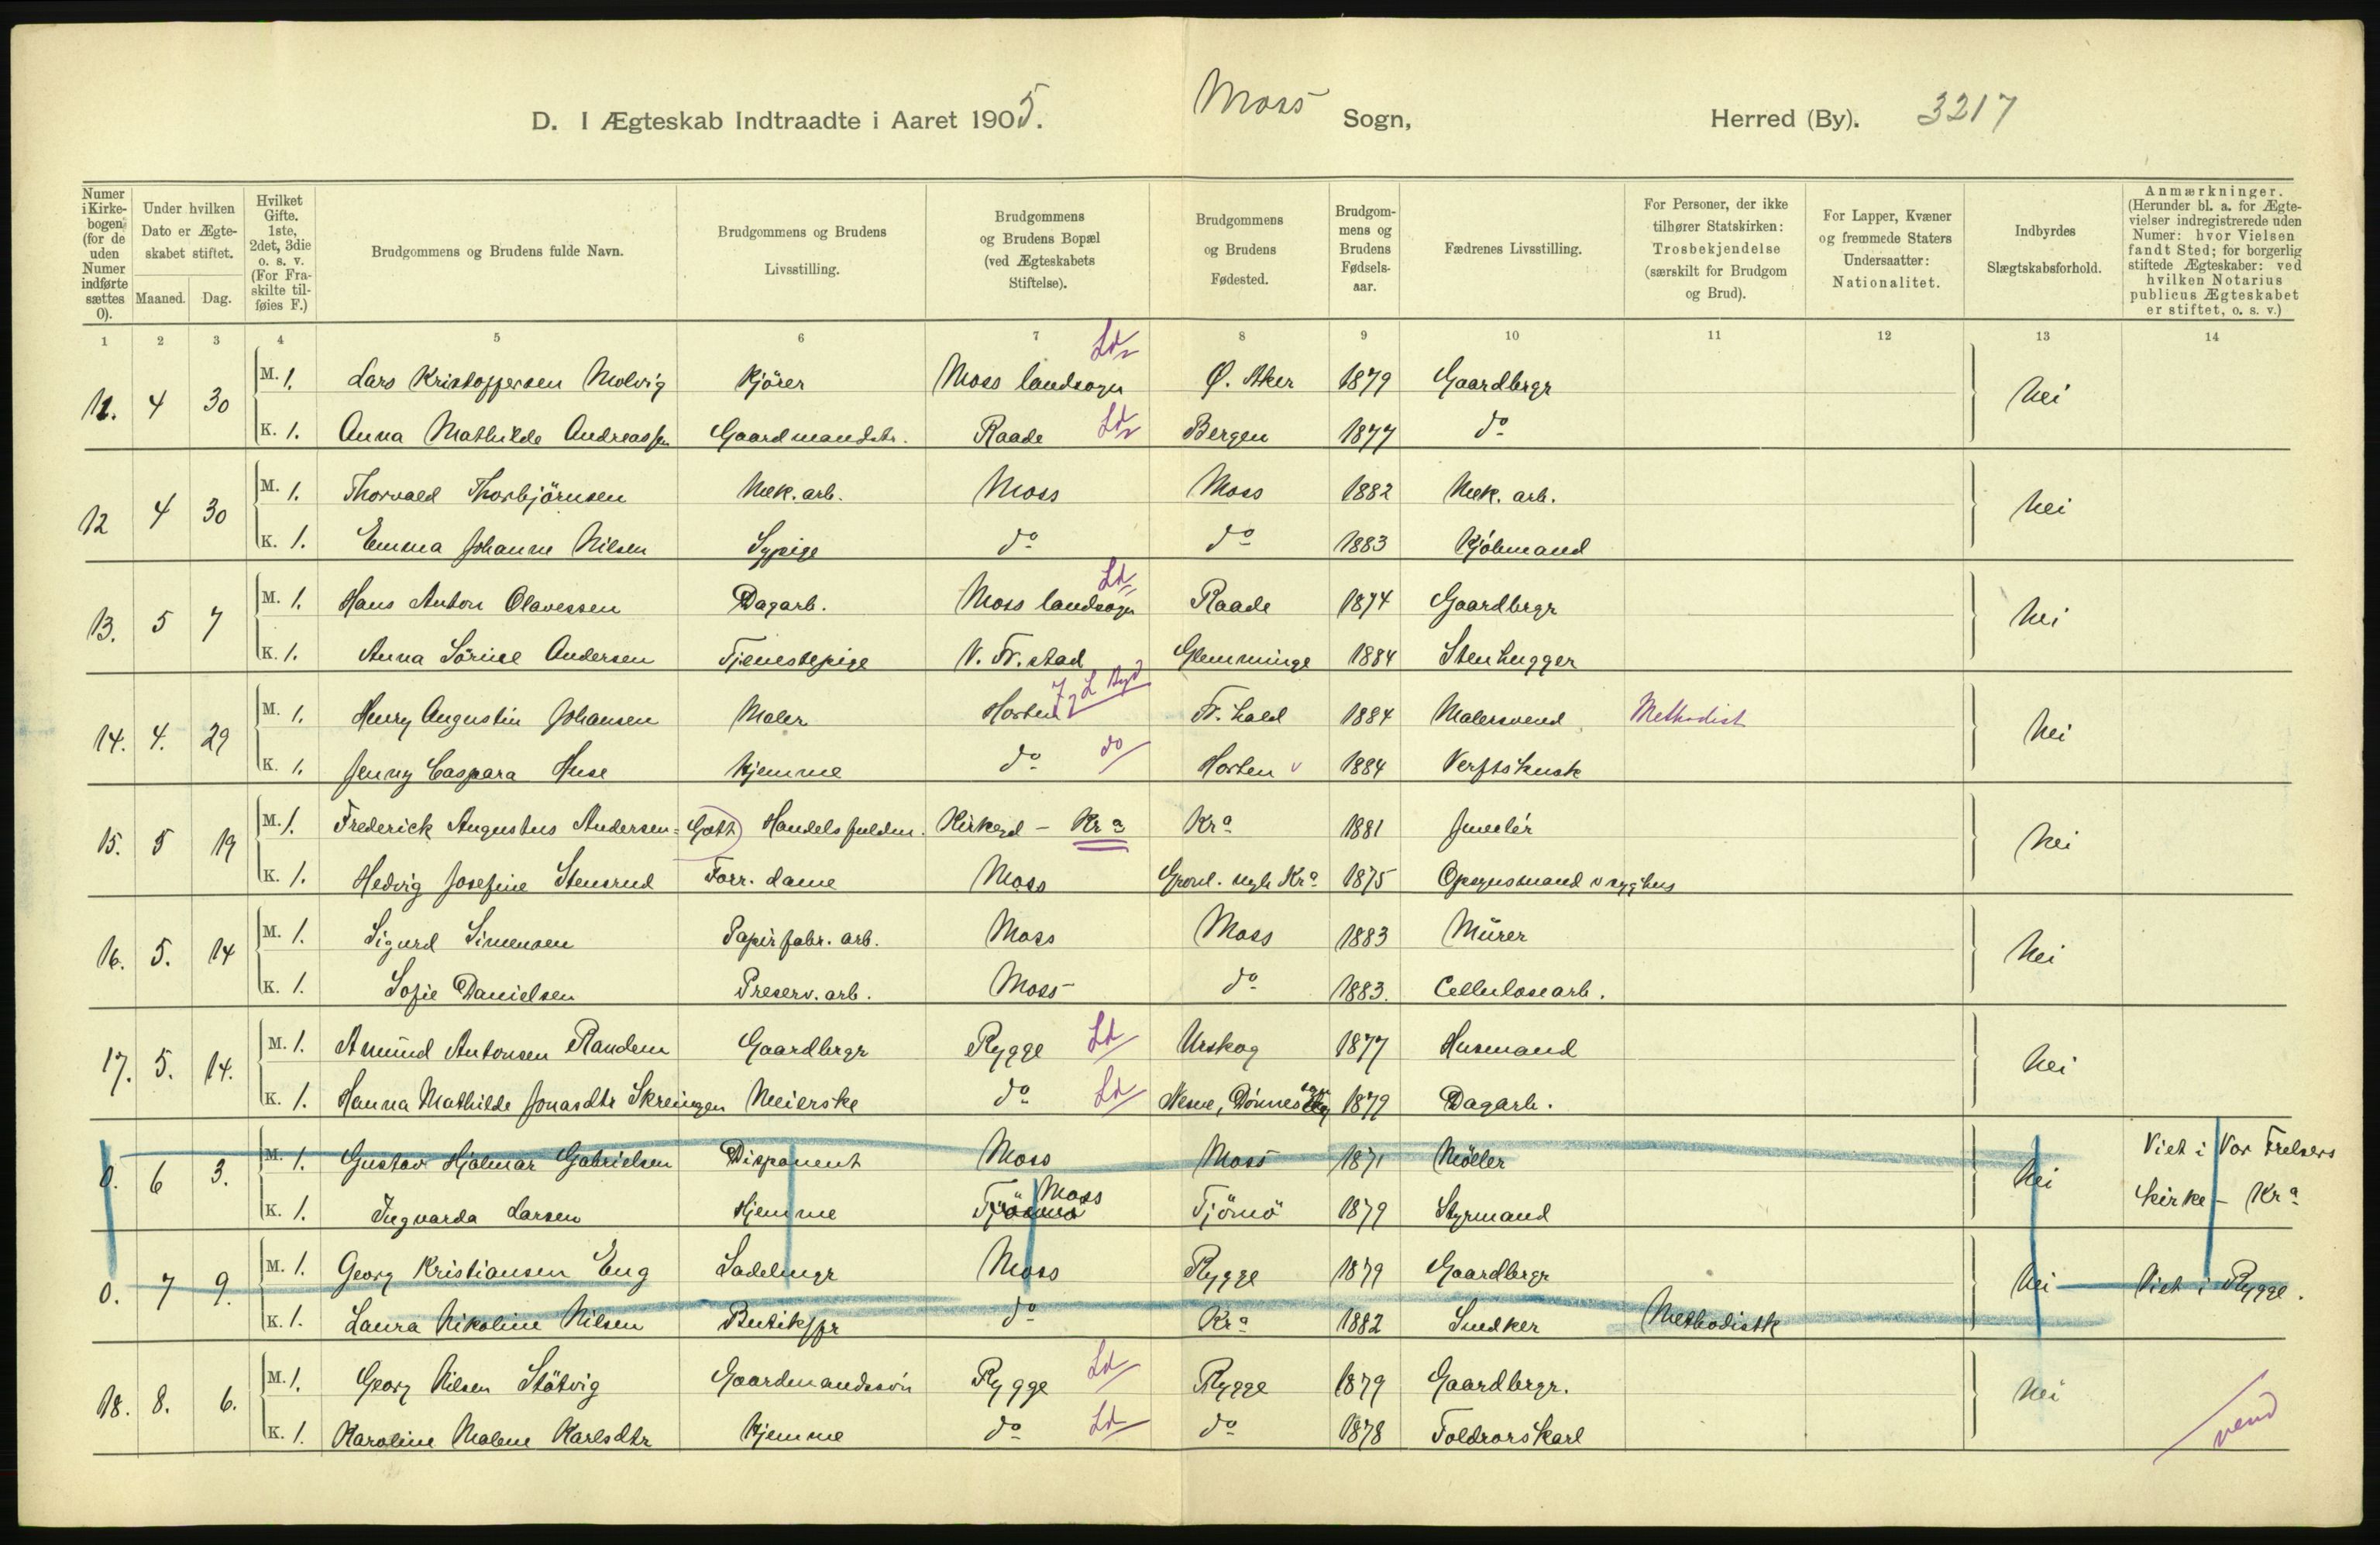 D. I Ægteskab Indtraadte i Aaret 1905. Moss Sogn, Herred (By). 3217
Numer i Kirke-bogen (for de uden Numer indførte sættes 0).
Under hvilken Dato er Ægte-skabet stiftet.
Maaned. Dag.
Hvilket Gifte. 1ste, 2det, 3die o. s. v. (For Fra-skilte til-føies F.)
Brudgommens og Brudens fulde Navn.
Brudgommens og Brudens Livsstilling.
Brudgommens og Brudens Bopæl (ved Ægteskabets Stiftelse).
Brudgommens og Brudens Fødested.
Brudgom-mens og Brudens Fødsels-aar.
Fædrenes Livsstilling.
For Personer, der ikke tilhører Statskirken: Trosbekjendelse (særskilt for Brudgom og Brud).
For Lapper, Kvæner og fremmede Staters Undersaatter: Nationalitet.
Indbyrdes Slægtskabsforhold.
Anmærkninger. (Herunder bl. a. for Ægte-vielser indregistrerede uden Numer: hvor Vielsen fandt Sted; for borgerlig stiftede Ægteskaber: ved hvilken Notarius publicus Ægteskabet er stiftet, o. s. v.)
1 2 3 4 5 6 7 8 9 10 11 12 13 14
11. 4 30 M. 1. Lars Kristoffersen Molvig Kjörer Moss landsogn Ld Ø. Aker 1879 Gaardbrgr nei
K. 1. Anna Mathilde Andreassen Gaardmandsdtr. Raade Ld Bergen 1877 do
12 4 30 M. 1. Thorvald Thorbjörnsen Mek. arb. Moss Moss 1882 Mek. arb. nei
K. 1. Emma Johanne Nilsen Sypige do do 1883 Kjöbmand
13. 5 7 M. 1. Hans Anton Olavessen Dagarb. Moss landsogn Ld Raade 1874 Gaardbrgr nei
K. 1. Anna Sörine Andersen Tjenestepige V. Fr.stad Glemminge 1884 Stenhugger
14. 4. 29 M. 1. Henry Augustin Johansen Maler Horten Fr. hald 1884 Malersvend Methodist nei
K. 1. Jenny Caspara Huse hjemme do do Horten 1884 Verftskusk
15. 5 19 M. 1. Frederick Augustus Andersen=Gott Handelsfuldm. Kirkegd - Kra Kra 1881 Juvelér nei
K. 1. Hedvig Josefine Stensrud Forr. dame Moss Grønl. Kra 1875 Opsynsmand v sygehus
16. 5. 14 M. 1. Sigurd Simensen Papirfabr. arb. Moss Moss 1883 Mürer nei
K. 1. Sofie Danielsen Preserv. arb. Moss do 1883. Cellulosearb.
17. 5. 14. M. 1. Amünd Antonsen Randem Gaardbrgr Rygge Ld Urskog 1877 Husmand nei
K. 1. Hanna Mathilde Jonasdtr Skreingen Meierske do Ld Nesne, Dönnes 1879 Dagarb.
0. 6 3. M. 1. Gustav Hjalmar Gabrielsen Disponent Moss Moss 1871 Möller nei Viet i Vor Frelsers
K. 1. Ingvarda Larsen Hjemme Tjömö Moss Tjömö 1879 Styrmand kirke - Kra
0. 7 9. M. 1. Georg Kristiansen Eng Sadelmgr Moss Rygge 1879 Gaardbrgr nei Viet i Rygge.
K. 1. Laura Nikoline Nilsen Butikjfr do Kra 1882 Snedker Methodistk
18. 8. 6. M. 1. Georg Nilsen Stötvig Gaardmandssön Rygge Ld Rygge 1879 Gaardbrgr. nei
K. 1. Karoline Malene Karlsdtr hjemme do Ld do 1878 Toldrorskarl vend